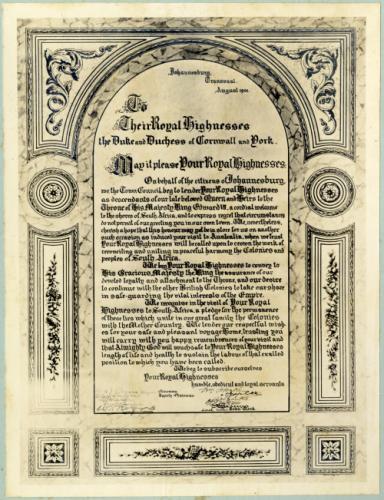 Johannesburg,
Transvaal.
August 1901.
To
Their Royal Highnesses
the Duke and Duchess of Cornwall and York.
May it please Your Royal Highnesses.
On behalf of the citizens of Johannesburg,
we the Town Council, beg to tender Your Royal Highnesses
as descendants of our late beloved Queen and Heirs to the
Throne of His Majesty King Edward VII, a cordial welcome
to the shores of South Africa, and to express regret that circumstances
do not permit of our greeting you in our own town. We, nevertheless,
cherish a hope that this honour may yet be in store for us on another
such occasion as induced your visit to Australia, when we trust
Your Royal Highnesses will be called upon to crown the work of
reuniting and uniting in peaceful harmony the Colonies and
peoples of South Africa.
We beg Your Royal Highnesses to convey to
His Gracious Majesty the King the assurance of our
devoted loyalty and attachment to the Throne, and our desire
to combine with the other British Colonies to take our share
in safe-guarding the vital interests of the Empire.
We recognise in the visit of Your Royal
Highnesses to South Africa, a pledge for the permanence
of those ties which unite in one great family the Colonies
with the Mother Country. We tender our respectful wish-
es for your safe and pleasant voyage Home, trusting you
will carry with you happy remembrances of your visit and
that Almighty God will vouchsafe to Your Royal Highnesses
length of life and health to sustain the labours of that exalted
position to which you have been called.
We beg to subscribe ourselves
Your Royal Highnesses
humble, obedient and loyal servants
Chairman
Deputy Chairman
Town Clerk